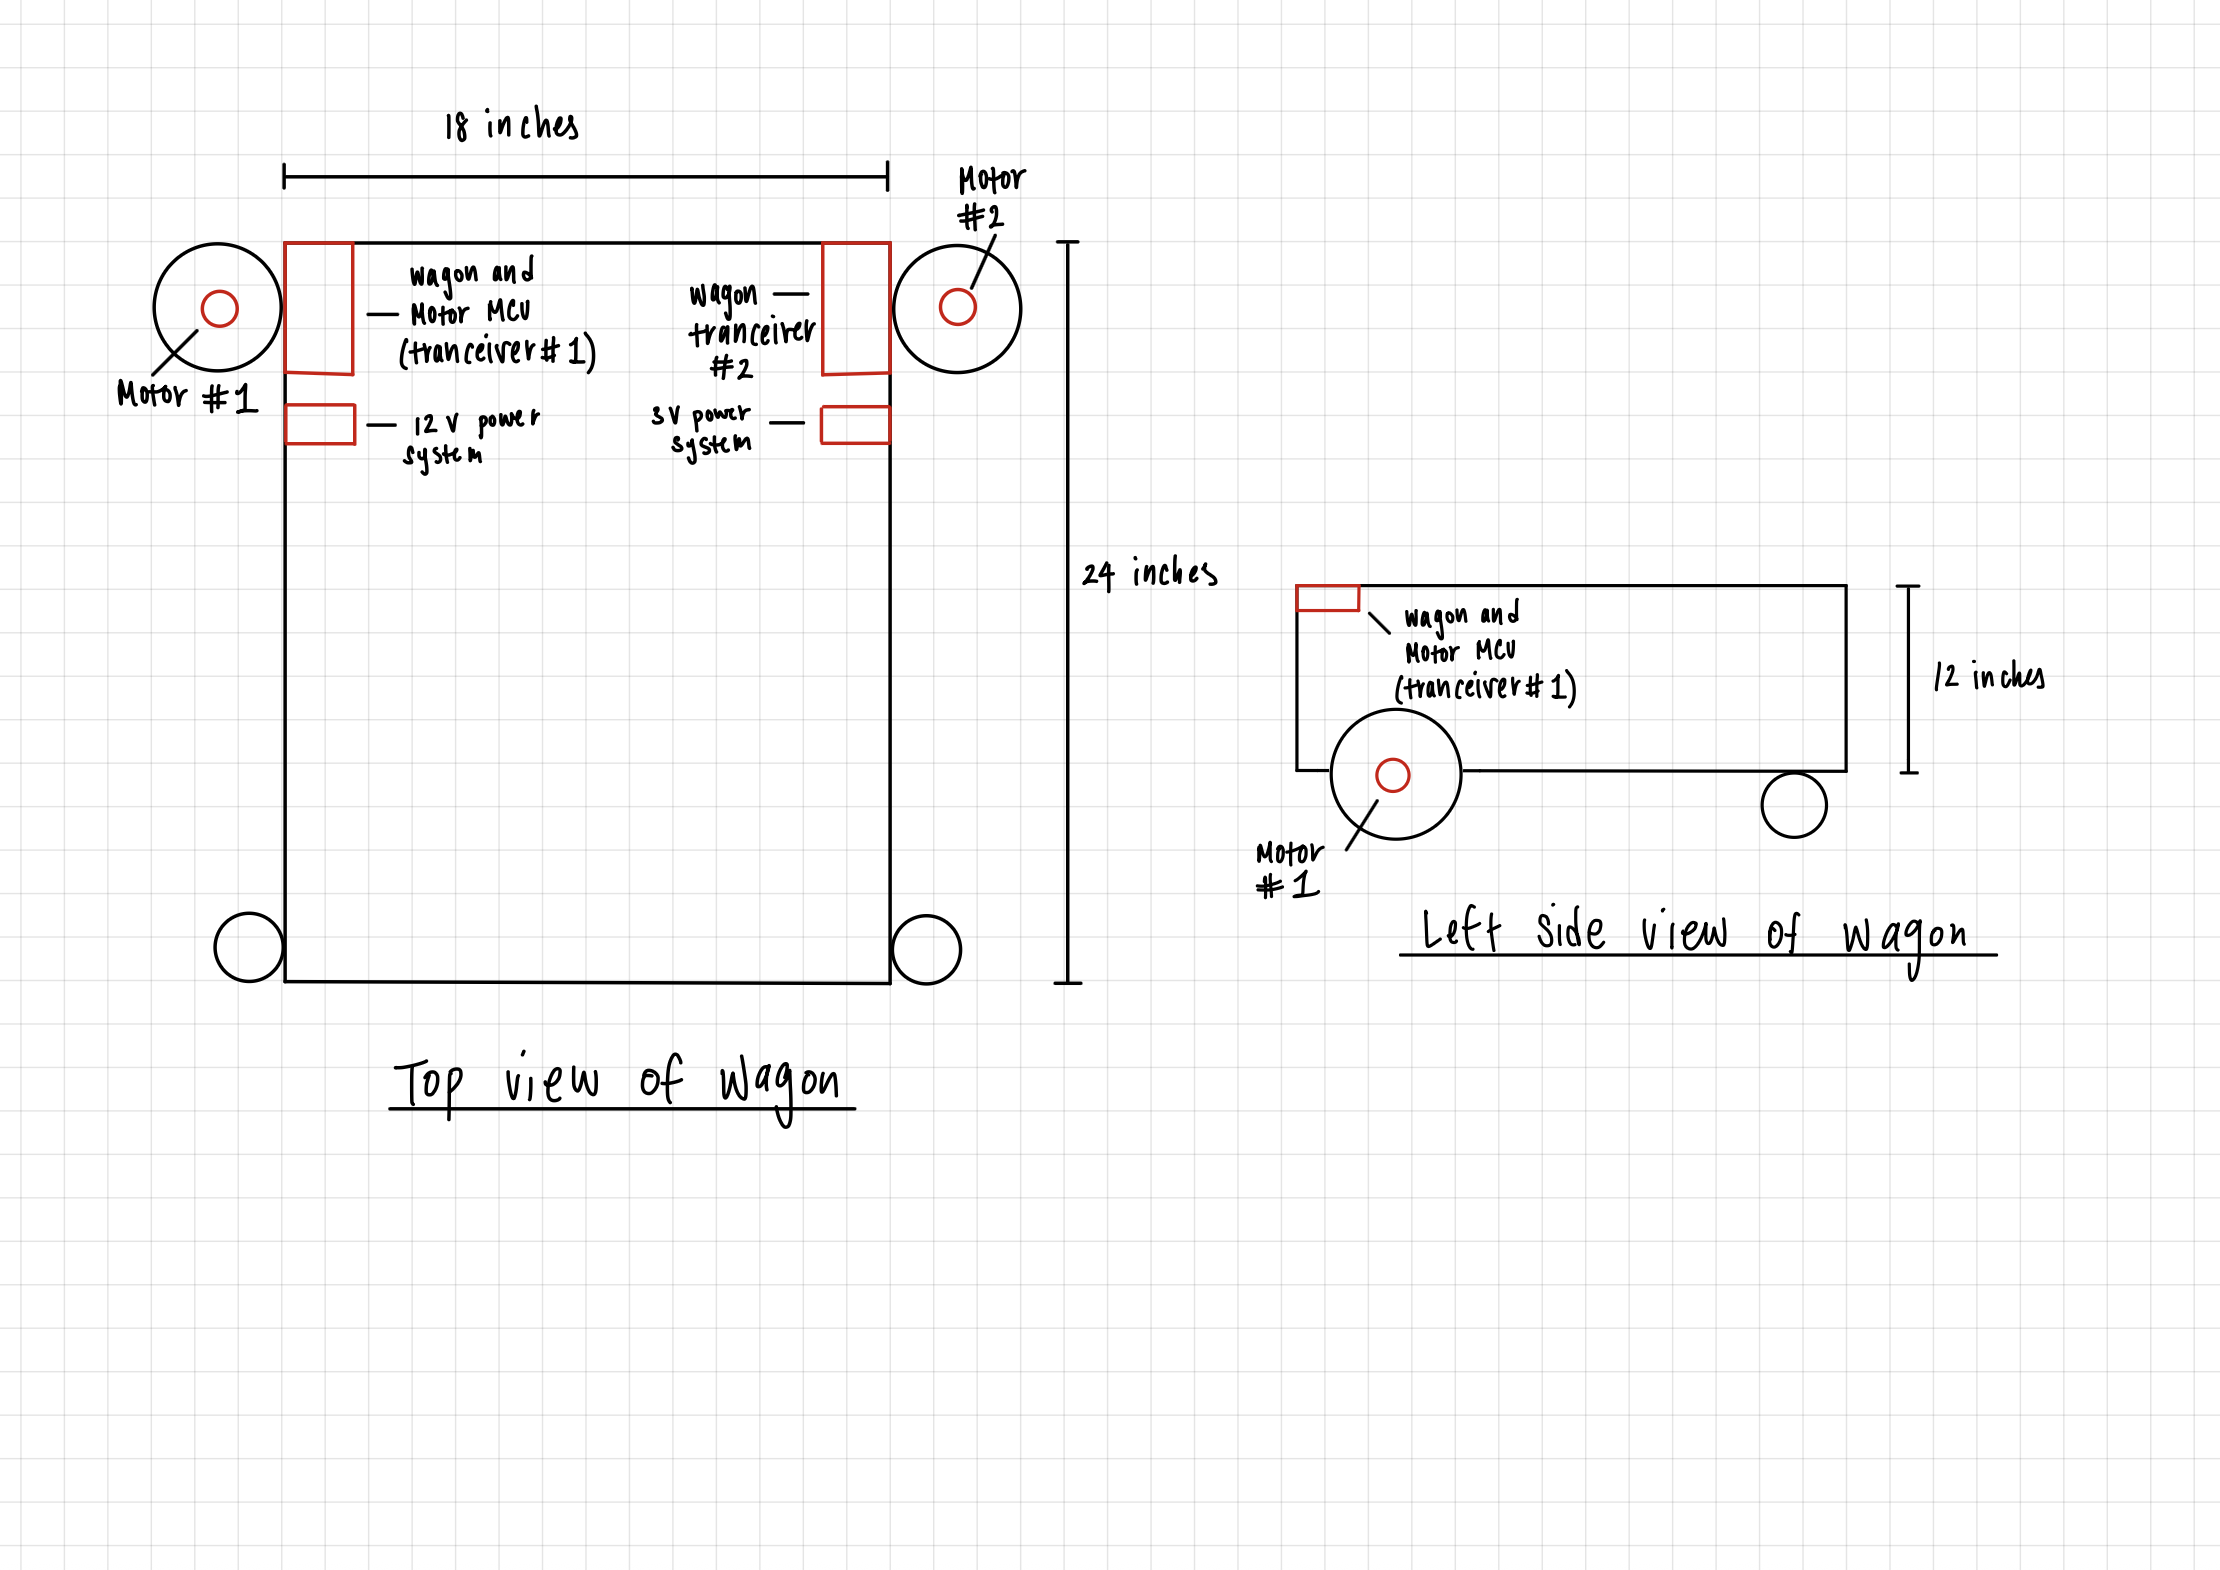 18 inches
Motor
#2
wagon and
Motor MCU
(tranceiver #1)
wagon
tranceiver
#2
Motor #1
12 V power
system
3V power
system
24 inches
wagon and
Motor MCU
(tranceiver #1)
12 inches
Motor
#1
Left side view of wagon
Top view of wagon